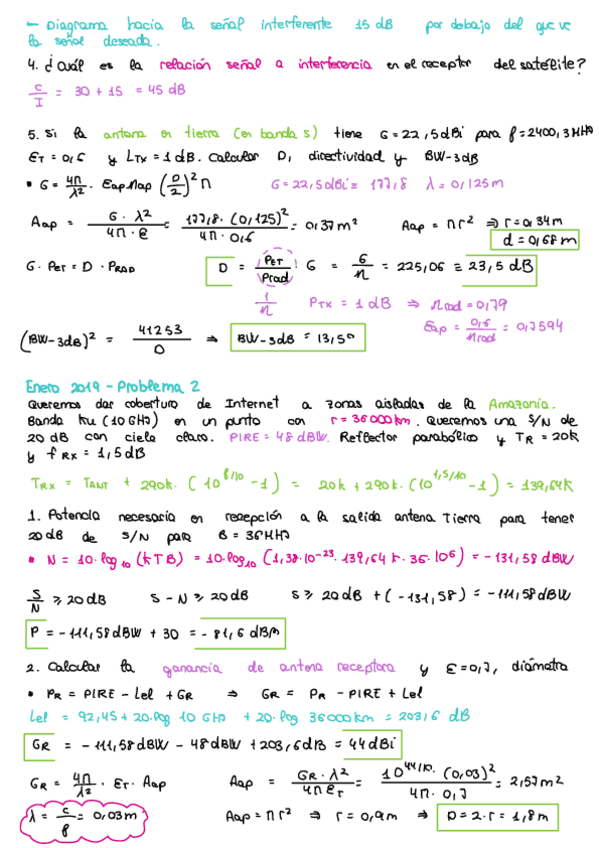 - Diagrama hacia la señal interferente 15 dB por debajo del que ve
la señal deseada.
4. ¿Cuál es la relación señal a interferencia en el receptor del satélite?
C/I = 30 + 15 = 45 dB
5. Si la antena en tierra (en banda S) tiene G = 22,5 dBi para f = 2400,3 MHz
ET = 0,6 y LTX = 1 dB. Calcular D, directividad y BW-3dB
• G = 4π/λ² · Eap Πap (D/2)² π G = 22,5 dBi ≡ 177,8 λ = 0,125m
Aap = G · λ² / 4π · E = 177,8 · (0,125)² / 4π · 0,6 = 0,37 m² Aap = πr² ⇒ r = 0,34m
d = 0,68 m
G · PET = D · PRAD D = PET/Prad · G = G/η = 225,06 ≡ 23,5 dB
1/η PTX = 1 dB ⇒ ηrad = 0,79
Eap = 0,6/ηrad = 0,7594
(BW-3dB)² = 41253/D ⇒ BW-3dB = 13,5º
Enero 2019 - Problema 2
Queremos dar cobertura de Internet a zonas aisladas de la Amazonía.
Banda Ku (10 GHz) en un punto con r = 36000 km. Queremos una S/N de
20 dB con cielo claro. PIRE = 48 dBW. Reflector parabólico y TR = 20K
y fRX = 1,5 dB
TRX = TANT + 290K · (10^(f/10) - 1) = 20K + 290K · (10^(1,5/10) - 1) = 139,64K
1. Potencia necesaria en recepción a la salida antena Tierra para tener
20 dB de S/N para B = 36 MHz
• N = 10 · log10 (kTB) = 10 · log10 (1,38 · 10^-23 · 139,64 K · 36 · 10^6) = -131,58 dBW
S/N ≥ 20 dB S - N ≥ 20 dB S ≥ 20 dB + (-131,58) = -111,58 dBW
P = -111,58 dBW + 30 = -81,6 dBm
2. Calcular la ganancia de antena receptora y E = 0,7, diámetro
• PR = PIRE - Lel + GR ⇒ GR = PR - PIRE + Lel
Lel = 92,45 + 20 · log 10 GHz + 20 · log 36000 km = 203,6 dB
GR = -111,58 dBW - 48 dBW + 203,6 dB = 44 dBi
GR = 4π/λ² · ET · Aap Aap = GR · λ² / 4π ET = 10^(44/10) · (0,03)² / 4π · 0,7 = 2,57 m²
λ = c/f = 0,03 m Aap = πr² ⇒ r = 0,9m ⇒ D = 2 · r = 1,8 m